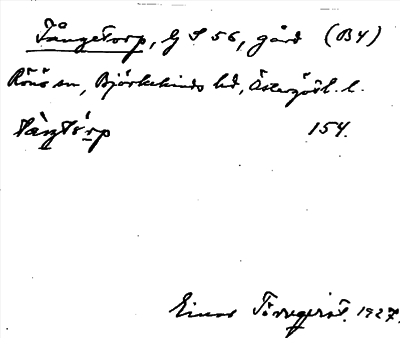 Tångetorp, G S 56, gård (B4)
Rönö sn, Björkekinds hd, Östergötl. l.
tàŋtórp 154.
Einar Törnqvist. 1927.